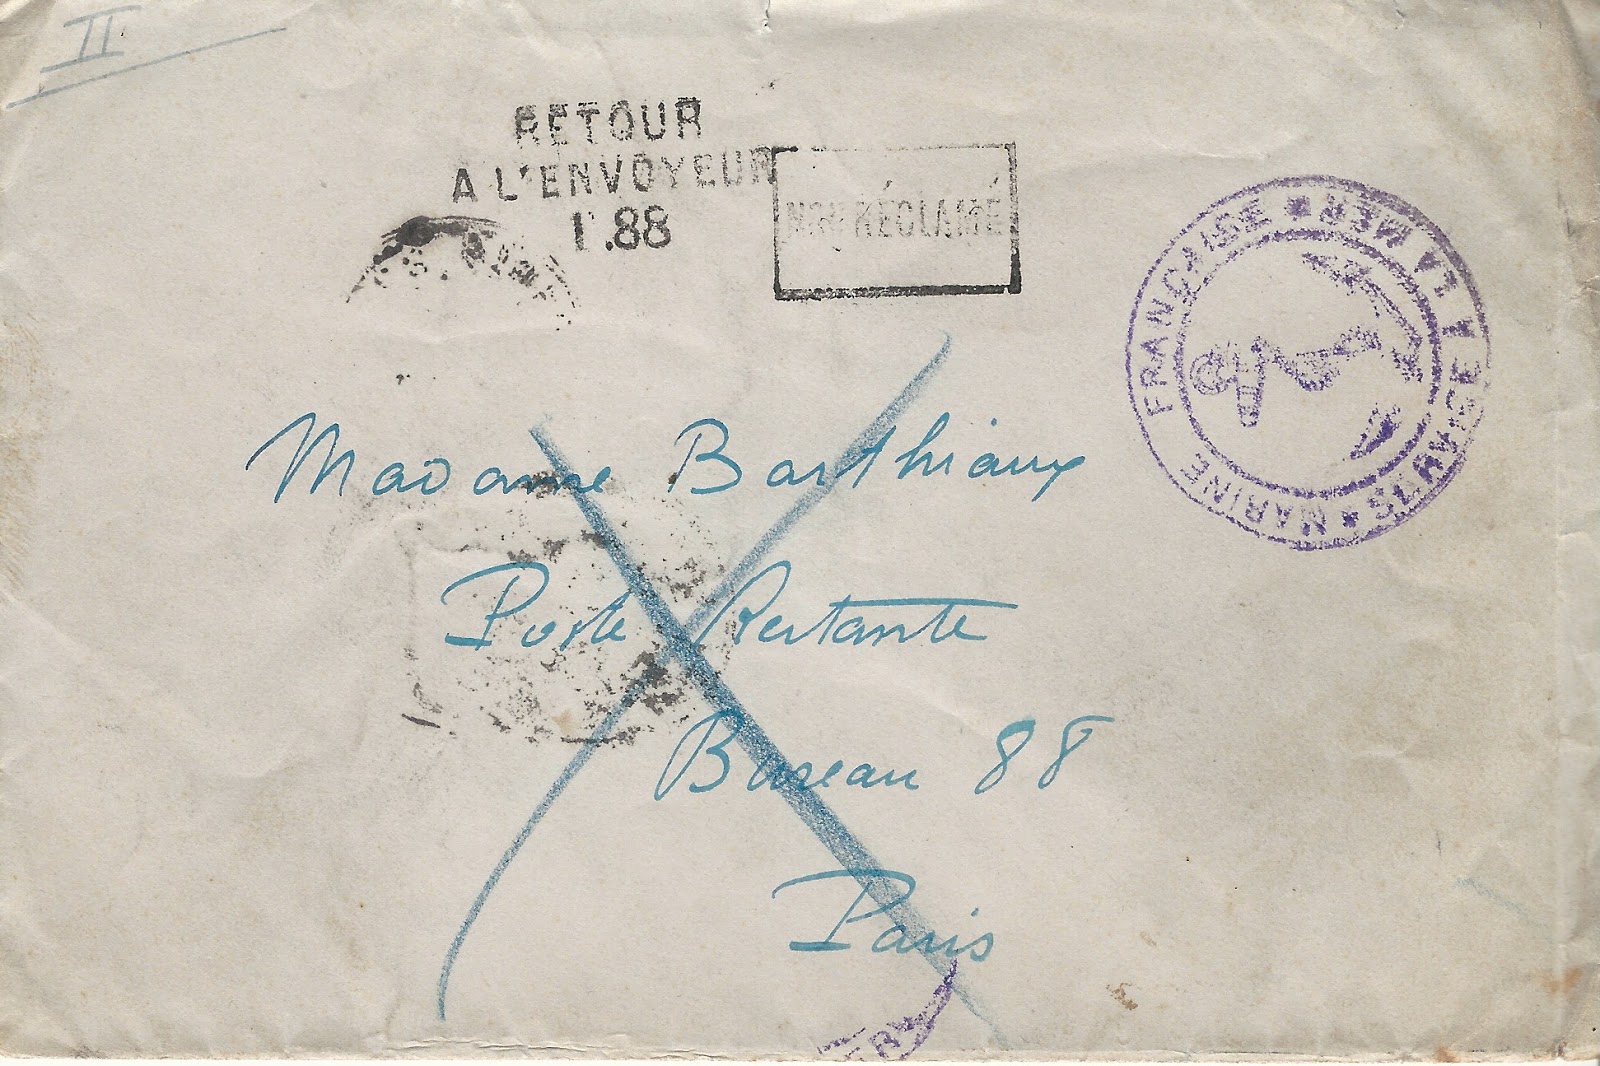 II
RETOUR
A L'ENVOYEUR
1.88
NON RÉCLAMÉ
MARINE FRANÇAISE ★ SERVICE A LA MER ★
Madame Barthiaux
Poste Restante
Bureau 88
Paris